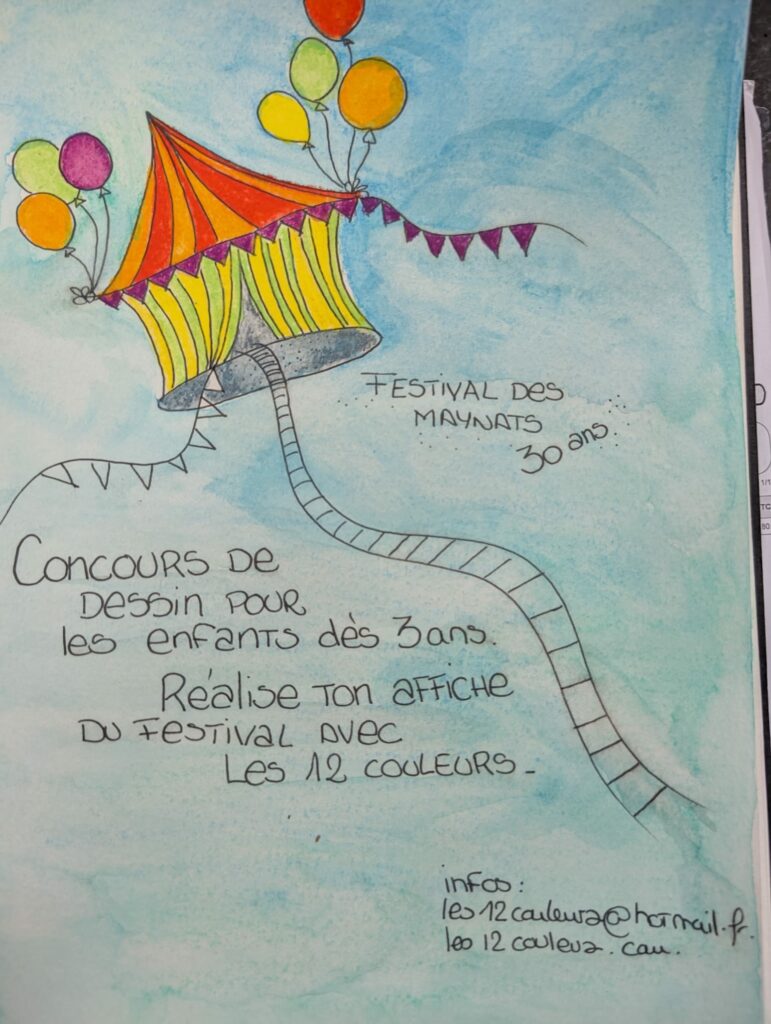 FESTIVAL DES
MAYNATS
30 ans
CONCOURS DE
DESSIN POUR
les enfants dès 3 ans.
RÉALISE TON AFFICHE
DU FESTIVAL AVEC
LES 12 COULEURS_
infos :
les12couleurs@hotmail.fr.
les12couleurs.com.